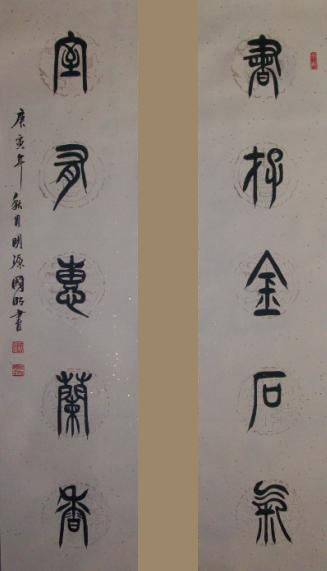 書存金石氣
室有蕙蘭香
庚寅年秋月明源國昭書